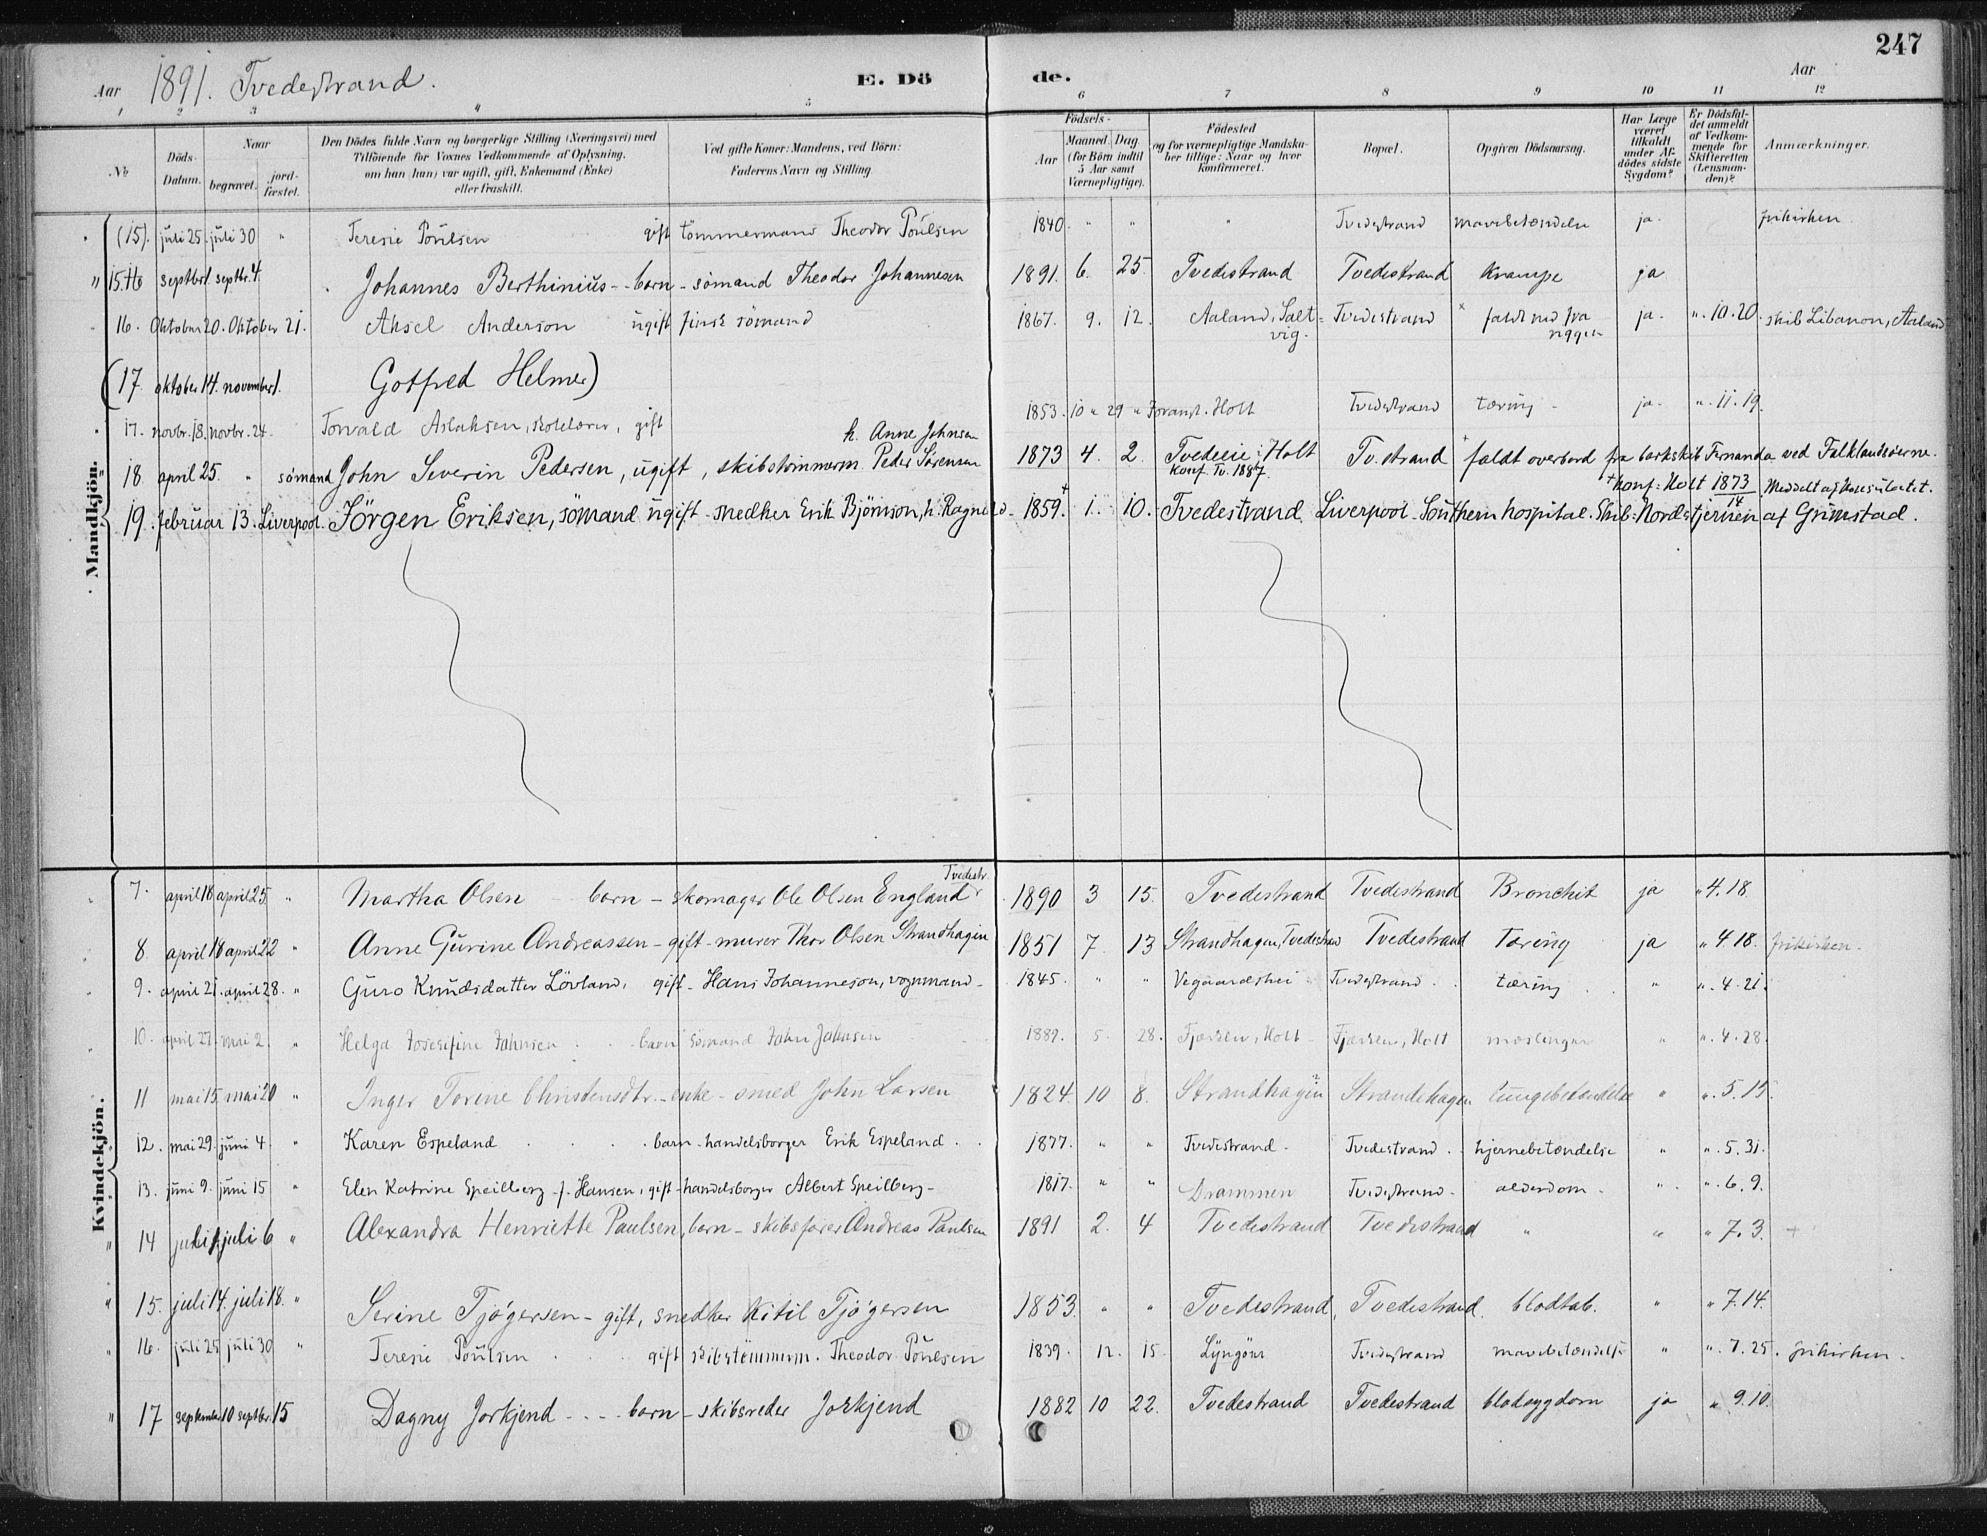 247
Aar 1891. Tvedestrand. E. Dö de. Aar
1 2 3 4 5 6 7 8 9 10 11 12
No
Döds-Datum.
Naar
begravet.
jord-fæstet.
Den Dödes fulde Navn og borgerlige Stilling (Næringsvei) med
Tilföiende for Voxnes Vedkommende af Oplysning,
om han (hun) var ugift, gift, Enkemand (Enke)
eller fraskilt.
Ved gifte Koner: Mandens, ved Börn:
Faderens Navn og Stilling.
Födsels-
Aar
Maaned. Dag
(for Börn indtil
5 Aar samt
Værnepligtige).
Födested
og for værnepligtige Mandska-
ber tillige: Naar og hvor
konfirmeret.
Bopæl.
Opgiven Dödsaarsag.
Har Læge
været
tilkaldt
under Af-
dödes sidste
Sygdom?
Er Dödsfal-
det anmeldt
af Vedkom-
mende for
Skifteretten
(Lensman-
den)?
Anmærkninger.
Mandkjön.
(15). juli 25. juli 30 " Teresie Poulsen gift tömmermand Theodor Poulsen 1840. " " " Tvedestrand mavebetændelse ja. frikirken
" 15. septbr 1. septbr. 4. Johannes Berthinius - barn - sömand Theodor Johannesen 1891. 6. 25. Tvedestrand Tvedestrand Krampe ja
16. Oktober 20. Oktober 21. Aksel Anderson ugift finsk sömand 1867. 9. 12. Aaland, Salt-vig. Tvedestrand × faldt ned fra riggen ja. ". 10. 20. skib Libanon, Aaland
(17. oktober 14. november 1. Gotfred Helmer)
17. novbr. 18. novbr. 24. Torvald Aslaksen, skolelærer, gift 1853. 10 " 29 " Holt Tvedestrand tæring - ja. ". 11. 19.
h. Anne Johnsen
18. april 25. " sömand John Severin Pedersen, ugift, skibstömmerm. Peder Sörensen 1873 4. 2. Tvedeeie: Holt Tv.strand × faldt overbord fra barkskib Fernanda ved Falklandsöerne.
Konf. Tv. 1887. + Konf: Holt 1873 14 Meddelt af Konsulatet.
19. februar 13. Liverpool. Jörgen Eriksen, sömand ugift - snedker Erik Björnson, h. Ragnild - 1859.+ 1. 10. Tvedestrand. Liverpool - Southern hospital. Skib: Nordstjernen af Grimstad.
Kvindekjön.
7. april 18 april 25 " Martha Olsen barn - skomager Ole Olsen England Tvedestr. 1890 3 15. Tvedestrand Tvedestrand Bronchit ja " 4. 18.
8. april 18 april 22 " Anne Gurine Andreassen - gift - murer Thor Olsen Strandhagen 1851 7 13 Strandhagen, Tvedestrand Tvedestrand Tæring ja " 4. 18. frikirken.
9. april 21. april 28. " Guro Knudsdatter Lövland, gift - Hans Johanneson, vognmand - 1845. " " Vegaardshei Tvedestrand. tæring " ". 4. 21.
10. april 27. mai 2. " Helga Josefine Johnsen barn sömand John Johnsen 1889. 5. 28. Fjærsen, Holt - Fjærsen, Holt mæslinger " ". 4. 28.
11 mai 15. mai 20 " Inger Torine Christensdtr. - enke - smed John Larsen 1824. 10 8. Strandhagen Strandehagen lungebetændelse " ". 5. 15.
12. mai 29. juni 4. " Karen Espeland barn - handelsborger Erik Espeland 1877. " " Tvedestrand - Tvedestrand. hjernebetændelse " ". 5. 31.
13. juni 9. juni 15 " Elen Katrine Speilberg - f. Hansen, gift - handelsborger Albert Speilberg - 1817. " " Drammen Tvedestrand. alderdom. " ". 6. 9.
" 14 juli 1. juli 6 " Alexandra Henriette Paulsen, barn - skibsförer Andreas Paulsen 1891 2. 4 Tvedestrand Tvedestrand " " " 7. 3. +
" 15. juli 14. juli 18. " Serine Tjögersen - gift, snedker Kitil Tjögersen 1853. " " Tvedestrand, Tvedestrand. blodtab. " " 7.14.
" 16. juli 25 juli 30 " Teresie Poulsen gift skibstömmerm. Theodor Poulsen 1839. 12. 15. Lyngöer Tvedestrand mavebetændelse " ". 7. 25. frikirken.
" 17 september 10 septbr. 15 Dagny Jorkjend - - - barn - skibsreder Jorkjend 1882 10 22. Tvedestrand Tvedestrand blodsygdom ja " 9. 10.